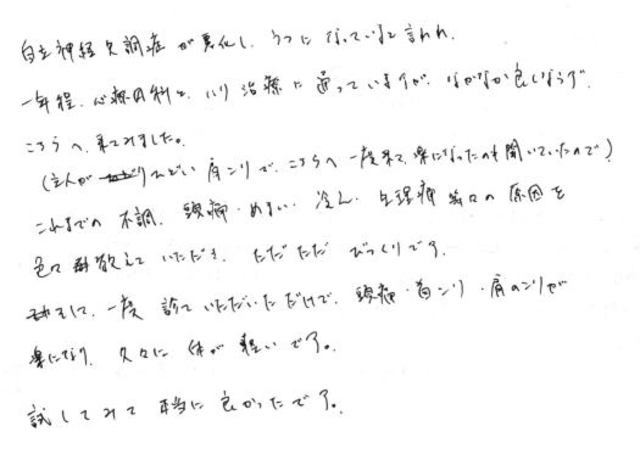 自立神経失調症が悪化し、うつになっていると言われ、
一年程、心療内科と、ハリ治療に通っていますが、なかなか良くならず、
こちらへ、来てみました。
(主人がひどい肩こりで、こちらへ一度来て、楽になったのを聞いていたので)
これまでの不調、頭痛・めまい・冷え・生理痛等々の原因を
色々教えていただき、ただただびっくりです。
そして、一度診ていただいただけで、頭痛・首こり・肩のこりが
楽になり、久々に体が軽いです。
試してみて本当に良かったです。